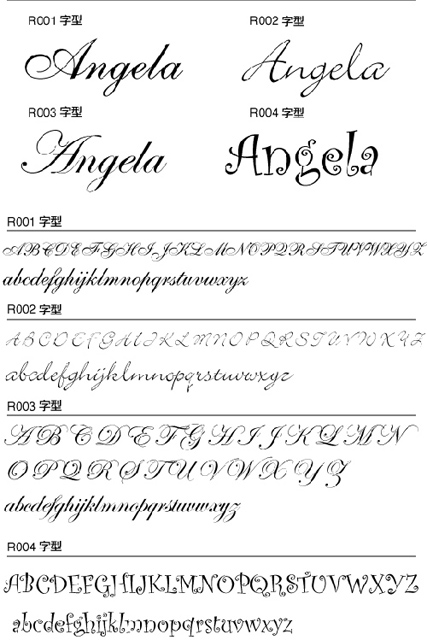 R001 字型 R002 字型
Angela Angela
R003 字型 R004 字型
Angela Angela
R001 字型
ABCDEFGHIJKLMNOPQRSTUVWXYZ
abcdefghijklmnopqrstuvwxyz
R002 字型
ABCDEFGHIJKLMNOPQRSTUVWXYZ
abcdefghijklmnopqrstuvwxyz
R003 字型
ABCDEFGHIJKLMN
OPQRSTUVWXYZ
abcdefghijklmnopqrstuvwxyz
R004 字型
ABCDEFGHIJKLMNOPQRSTUVWXYZ
abcdefghijklmnopqrstuvwxyz